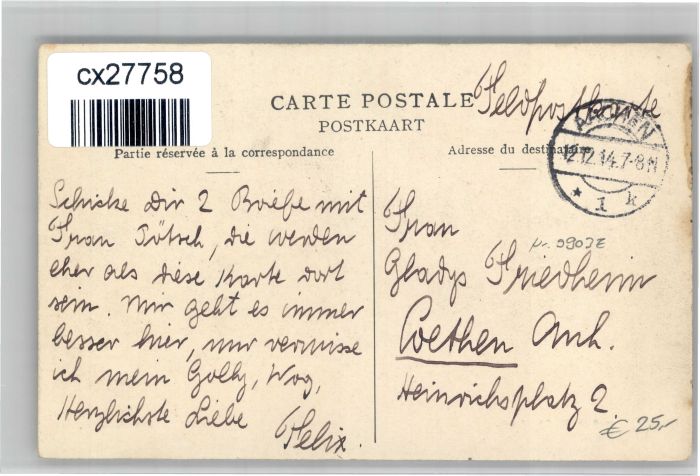 cx27758
Feldpostkarte
CARTE POSTALE
POSTKAART
Partie réservée à la correspondance
Adresse du destinataire
2.12.14.7-8N
* 1 k
Schicke Dir 2 Briefe mit
Frau Tötsch, die werden
eher als diese Karte dort
sein. Mir geht es immer
besser hier, nur vermisse
ich mein Golly, Wog,
Herzlichste Liebe
Felix.
Frau
Gladys Friedheim
Coethen Anh.
Heinrichsplatz 2
€ 25,-